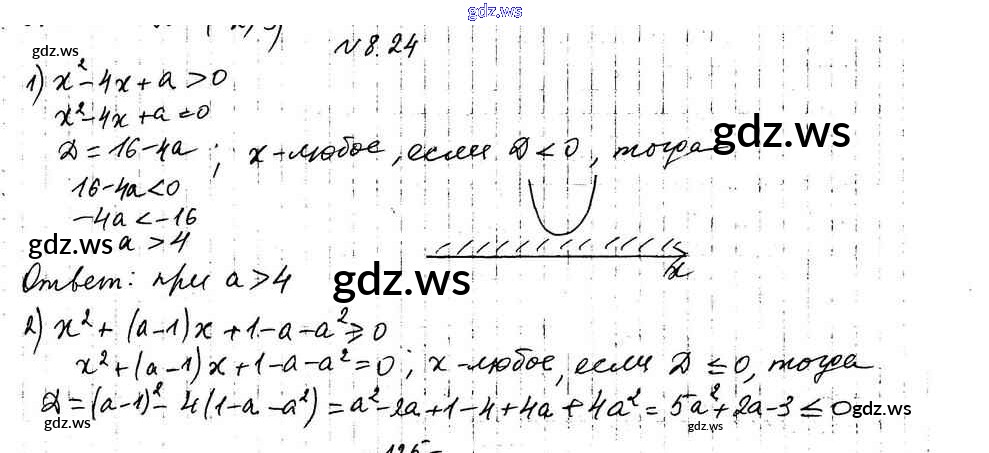 gdz.ws
N 8.24
gdz.ws
1) x² - 4x + a > 0
x² - 4x + a = 0
gdz.ws
D = 16 - 4a ; x - любое, если D < 0, тогда
16 - 4a < 0
-4a < -16
gdz.ws a > 4
x
Ответ: при a > 4
gdz.ws
2) x² + (a - 1)x + 1 - a - a² ≥ 0
x² + (a - 1)x + 1 - a - a² = 0; x - любое, если D ≤ 0, тогда
D = (a - 1)² - 4(1 - a - a²) = a² - 2a + 1 - 4 + 4a + 4a² = 5a² + 2a - 3 ≤ 0 gdz.ws
gdz.ws gdz.ws